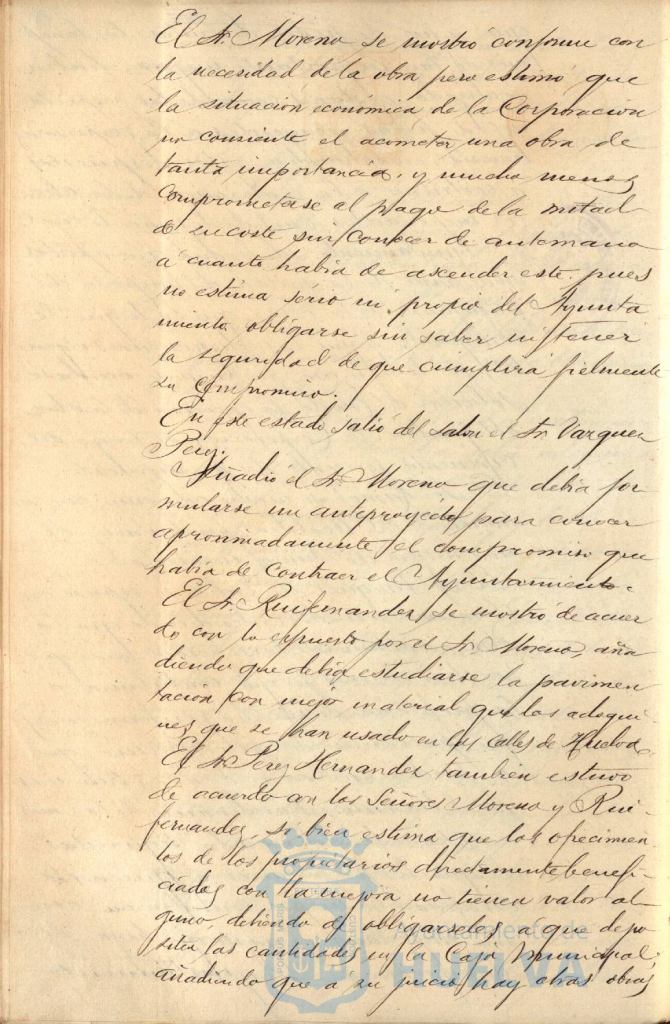 El Sr. Moreno se mostró conforme con
la necesidad de la obra pero estimó que
la situación económica de la Corporacion
no consiente el acometer una obra de
tanta importancia, y mucho menos
comprometerse al pago de la mitad
de su coste sin conocer de antemano
á cuanto habia de ascender este, pues
no estima sério ni propio del Ayunta
miento obligarse sin saber ni tener
la seguridad de que cumplirá fielmente
su compromiso.
En este estado salió del salon el Sr. Vazquez
Perez.
Añadió el Sr. Moreno que debia for
mularse un anteproyecto para conocer
aproximadamente el compromiso que
habia de contraer el Ayuntamiento.
El Sr. Ruifernandez se mostró de acuer
do con lo expuesto por el Sr. Moreno, aña
diendo que debia estudiarse la pavimen
tación con mejor material que los adoqui
nes que se han usado en las calles de Huelva.
El Sr. Perez Hernandez tambien estuvo
de acuerdo con los Señores Moreno y Rui-
fernandez, si bien estima que los ofrecimien
tos de los propietarios directamente benefi-
ciados con la mejora no tienen valor al
guno debiendo de obligarseles a que depo
siten las cantidades en la Caja Municipal,
añadiendo que á su juicio hay otras obras
Ayuntamiento de
HUELVA